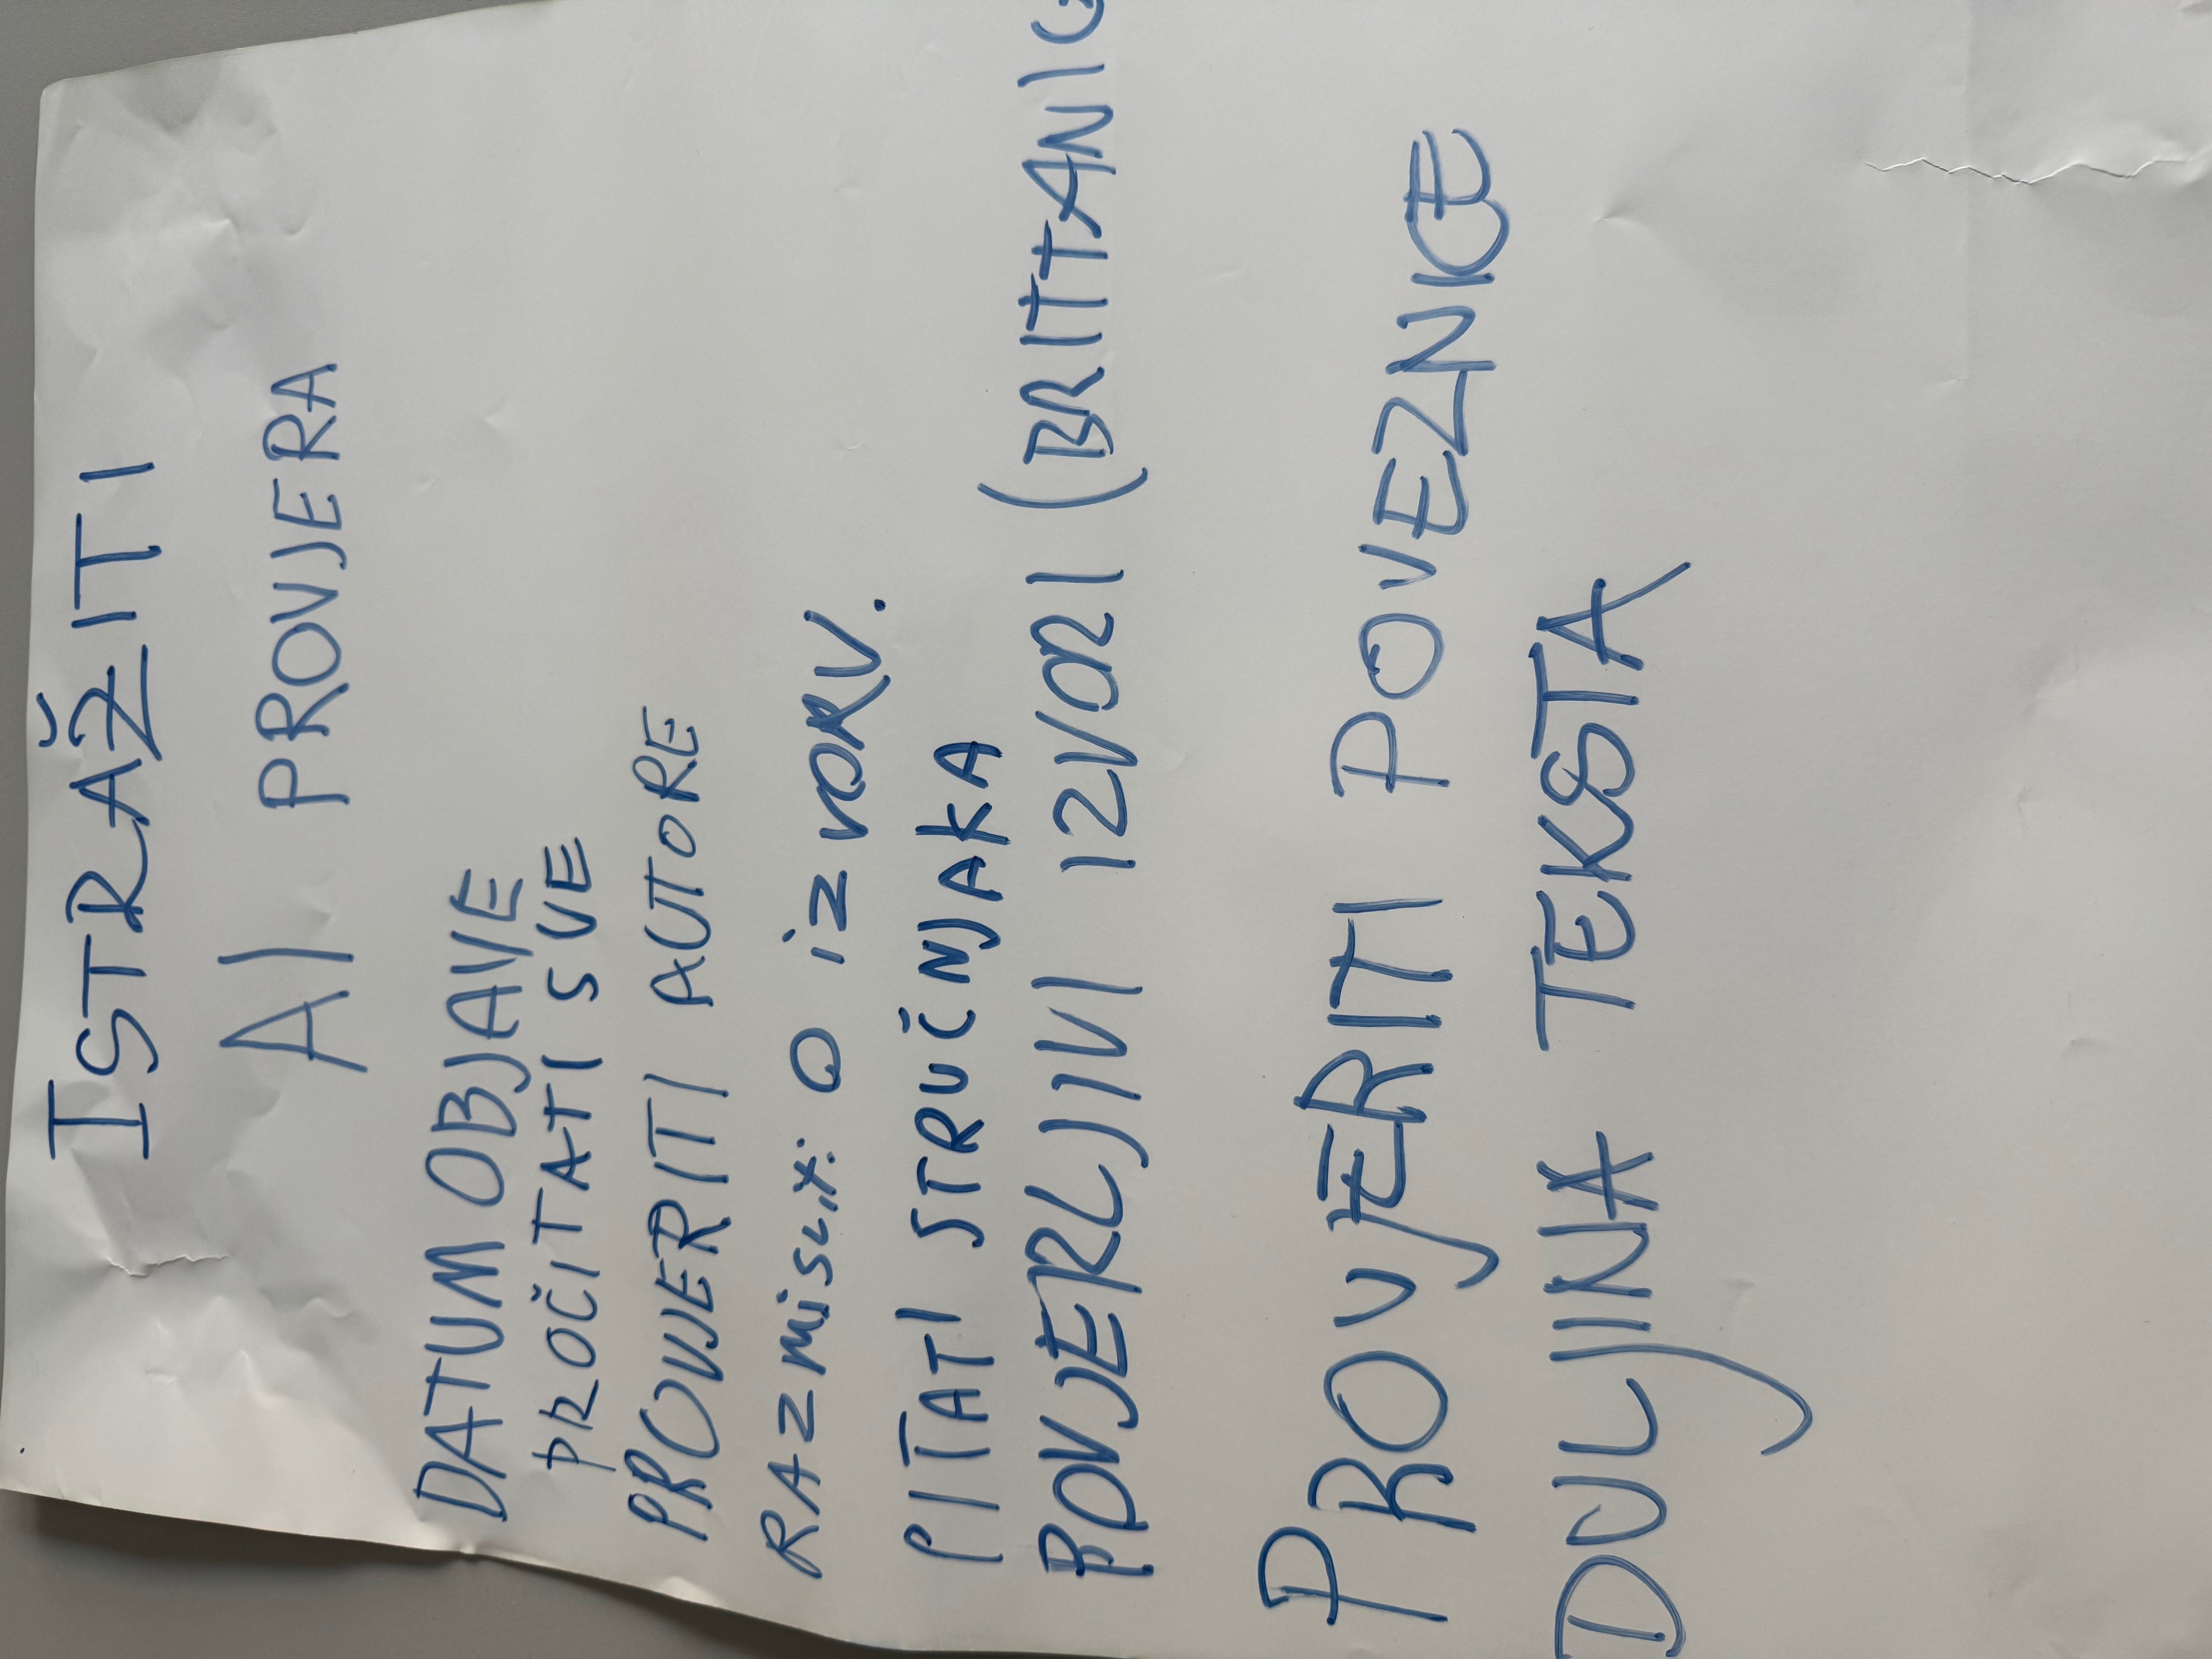 ISTRAŽITI
AI PROVJERA
DATUM OBJAVE
PROČITATI SVE
PROVJERITI AUTORE
RAZMISLITI O IZVORU.
PITATI STRUČNJAKA
POVJERLJIVI IZVORI (BRITTANIC
PROVJERITI POVEZNICE
DULJINA TEKSTA